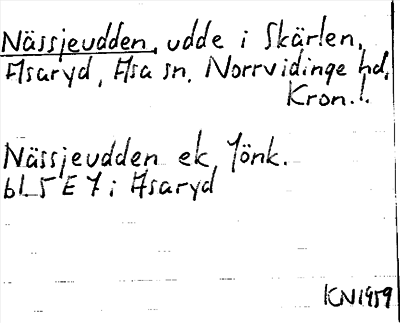 Nässjeudden, udde i Skärlen,
Asaryd, Asa sn, Norrvidinge hd,
Kron. l.
Nässjeudden ek, Jönk.
bl 5 E 7 i Asaryd
KN 1959